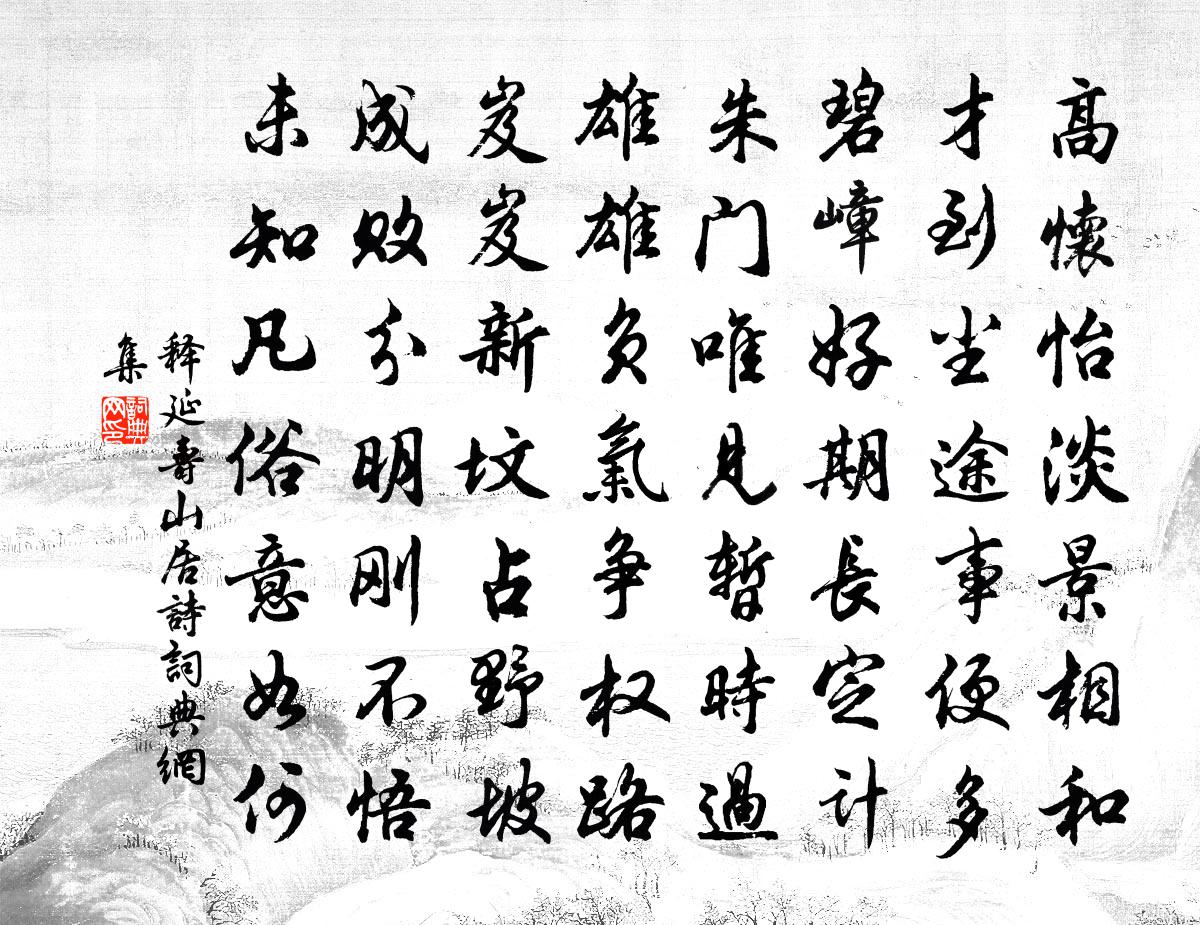 高懷怡淡景相和
才到尘途事便多
碧嶂好期長定计
朱门唯見暫時過
雄雄负氣争权路
岌岌新坟占野坡
成败分明刚不悟
未知凡俗意如何
释延壽山居詩詞典網
集
詞典网印